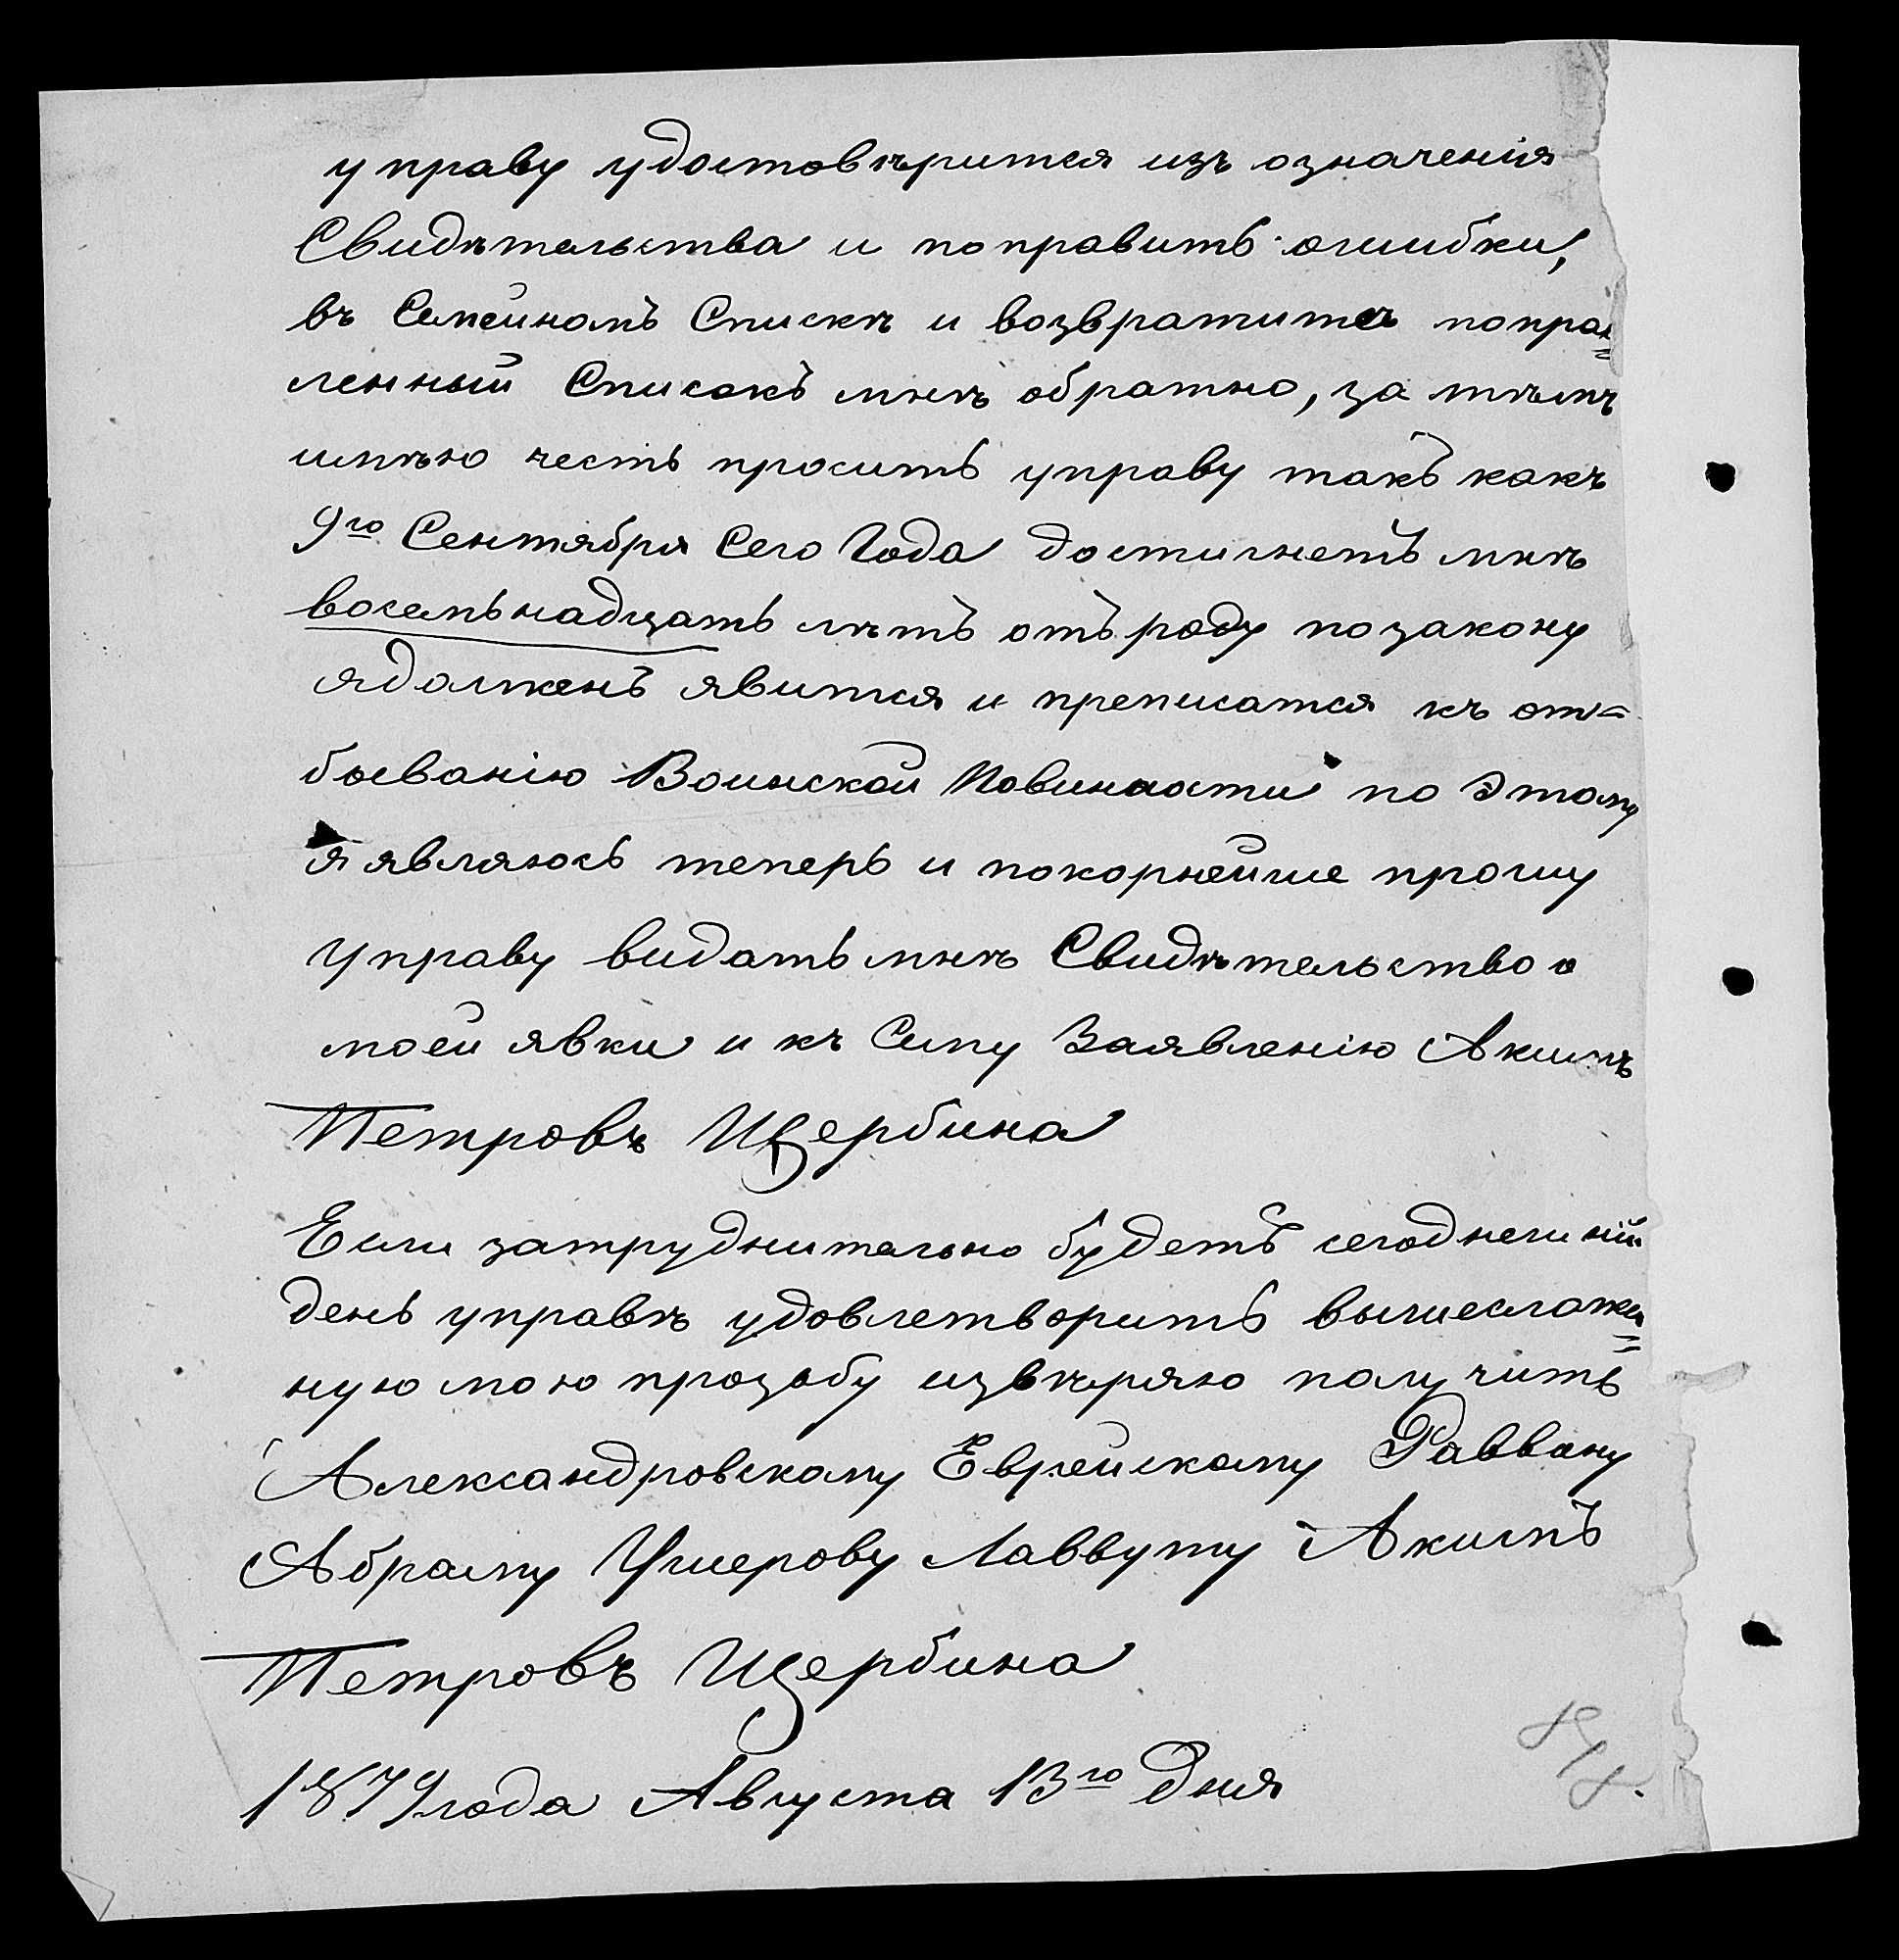 управу удостовѣрится изъ означенія
Свидѣтельства и поправить ошибки,
въ Семейномъ Спискѣ и возвратить поправ=
ленный Списокъ мнѣ обратно, за тѣмъ
имѣю честь просить управу такъ какъ
9го Сентября Сего Года достигнетъ мнѣ
восемьнадцать лѣтъ отъ роду по закону
я долженъ явится и преписатся къ от=
быванію Воинской Повинности по Этому
я являюсь теперь и покорнейше прошу
Управу видать мнѣ Свидѣтельство о
моей явки и къ Сему Заявленію Акимъ
Петровъ Щербина
Если затруднительно будетъ сегоднешній
день управѣ удовлетворить вышесложен=
ную мою прозьбу извѣряю получить
Александровскому Еврейскому Раввину
Абраму Ушерову Лаввуту Акимъ
Петровъ Щербина
1879 года Августа 13го Дня